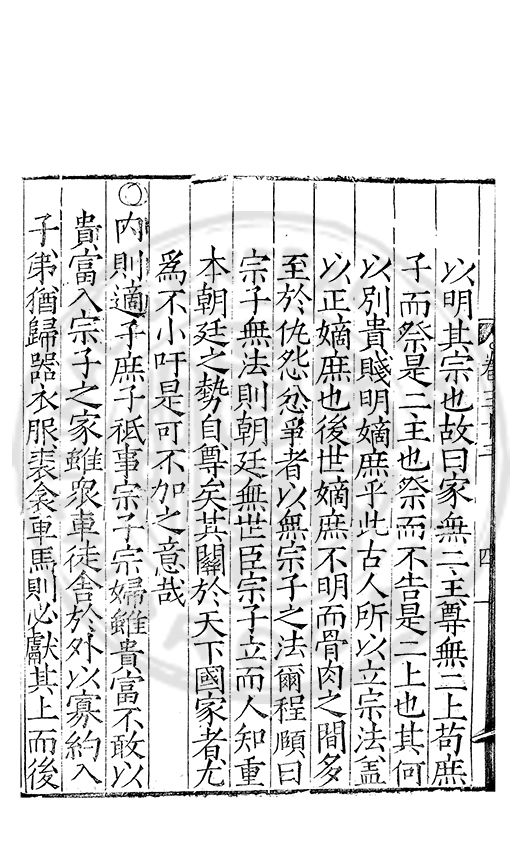 卷三十三
四
以明其宗也故曰家無二主尊無二上苟庶
子而祭是二主也祭而不告是二上也其何
以別貴賤明嫡庶乎此古人所以立宗法蓋
以正嫡庶也後世嫡庶不明而骨肉之間多
至於仇怨忿爭者以無宗子之法爾程頤曰
宗子無法則朝廷無世臣宗子立而人知重
本朝廷之勢自尊矣其關於天下國家者尤
爲不小吁是可不加之意哉
○內則適子庶子祗事宗子宗婦雖貴富不敢以
貴富入宗子之家雖衆車徒舍於外以寡約入
子弟猶歸器衣服裘衾車馬則必獻其上而後